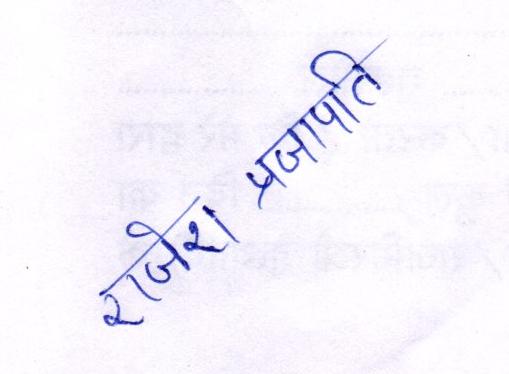 राजेश प्रजापति